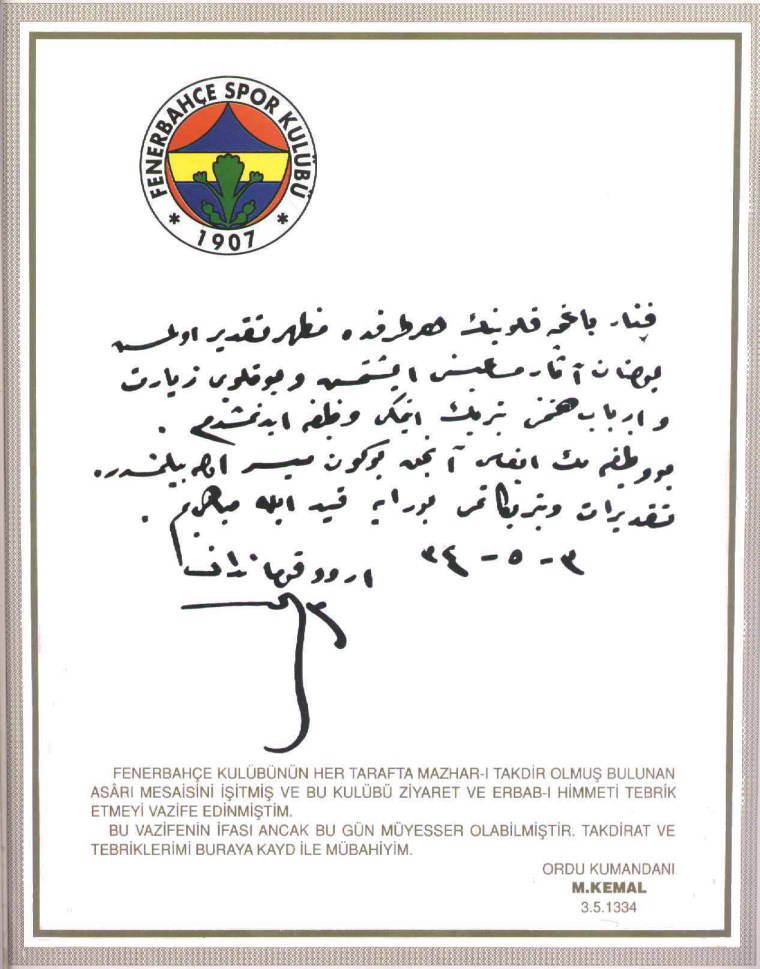 FENERBAHÇE SPOR KULÜBÜ
* 1907 *
فنار باغچه قلوبنك هر طرفده مظهر تقدير اولمش
بولنان آثار مساعيسنى ايشتمش و بو قلوبى زيارت
و ارباب همتى تبريك ايتمكى وظيفه ايدنمشدم .
بو وظيفه نك ايفاسى آنجق بوكون ميسر اوله بيلمشدر.
تقديرات و تبريكاتمى بورايه قيد ايله مباهىيم .
٣ - ٥ - ٣٤
اردو قوماندانى
FENERBAHÇE KULÜBÜNÜN HER TARAFTA MAZHAR-I TAKDİR OLMUŞ BULUNAN
ASÂRI MESAİSİNİ İŞİTMİŞ VE BU KULÜBÜ ZİYARET VE ERBAB-I HİMMETİ TEBRİK
ETMEYİ VAZİFE EDİNMİŞTİM.
BU VAZİFENİN İFASI ANCAK BU GÜN MÜYESSER OLABİLMİŞTİR. TAKDİRAT VE
TEBRİKLERİMİ BURAYA KAYD İLE MÜBAHİYİM.
ORDU KUMANDANI
M.KEMAL
3.5.1334